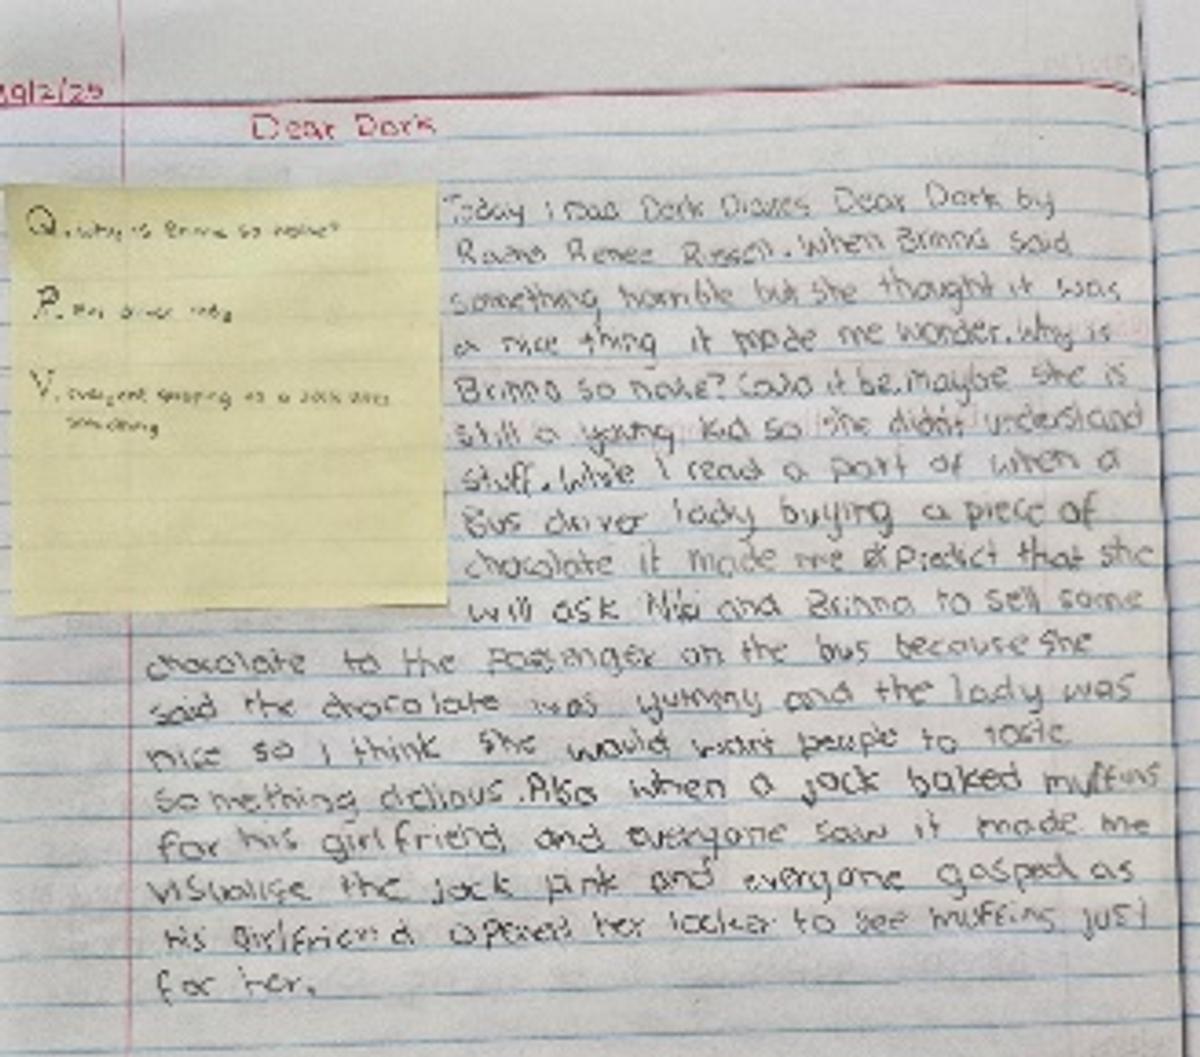 19/2/25
Dear Dork
Q. why is Brinna so naive?
P. Bus driver lady
V. everyone gasping as a Jock does
something
Today i read Dork Diaries Dear Dork by
Rachel Renee Russell. When Brinna said
something horrible but she thought it was
a nice thing it made me wonder. Why is
Brinna so naive? Could it be. maybe she is
still a young kid so she didn't understand
stuff. While I read a part of when a
Bus driver lady buying a piece of
chocolate it made me predict that she
will ask Niki and Brinna to sell some
chocolate to the passenger on the bus because she
said the chocolate was yummy and the lady was
nice so i think she would want people to taste
something delious. Also when a jock baked muffins
for his girlfriend and everyone saw it made me
visualise the jock pink and everyone gasped as
his girlfriend opened her locker to see muffins just
for her.